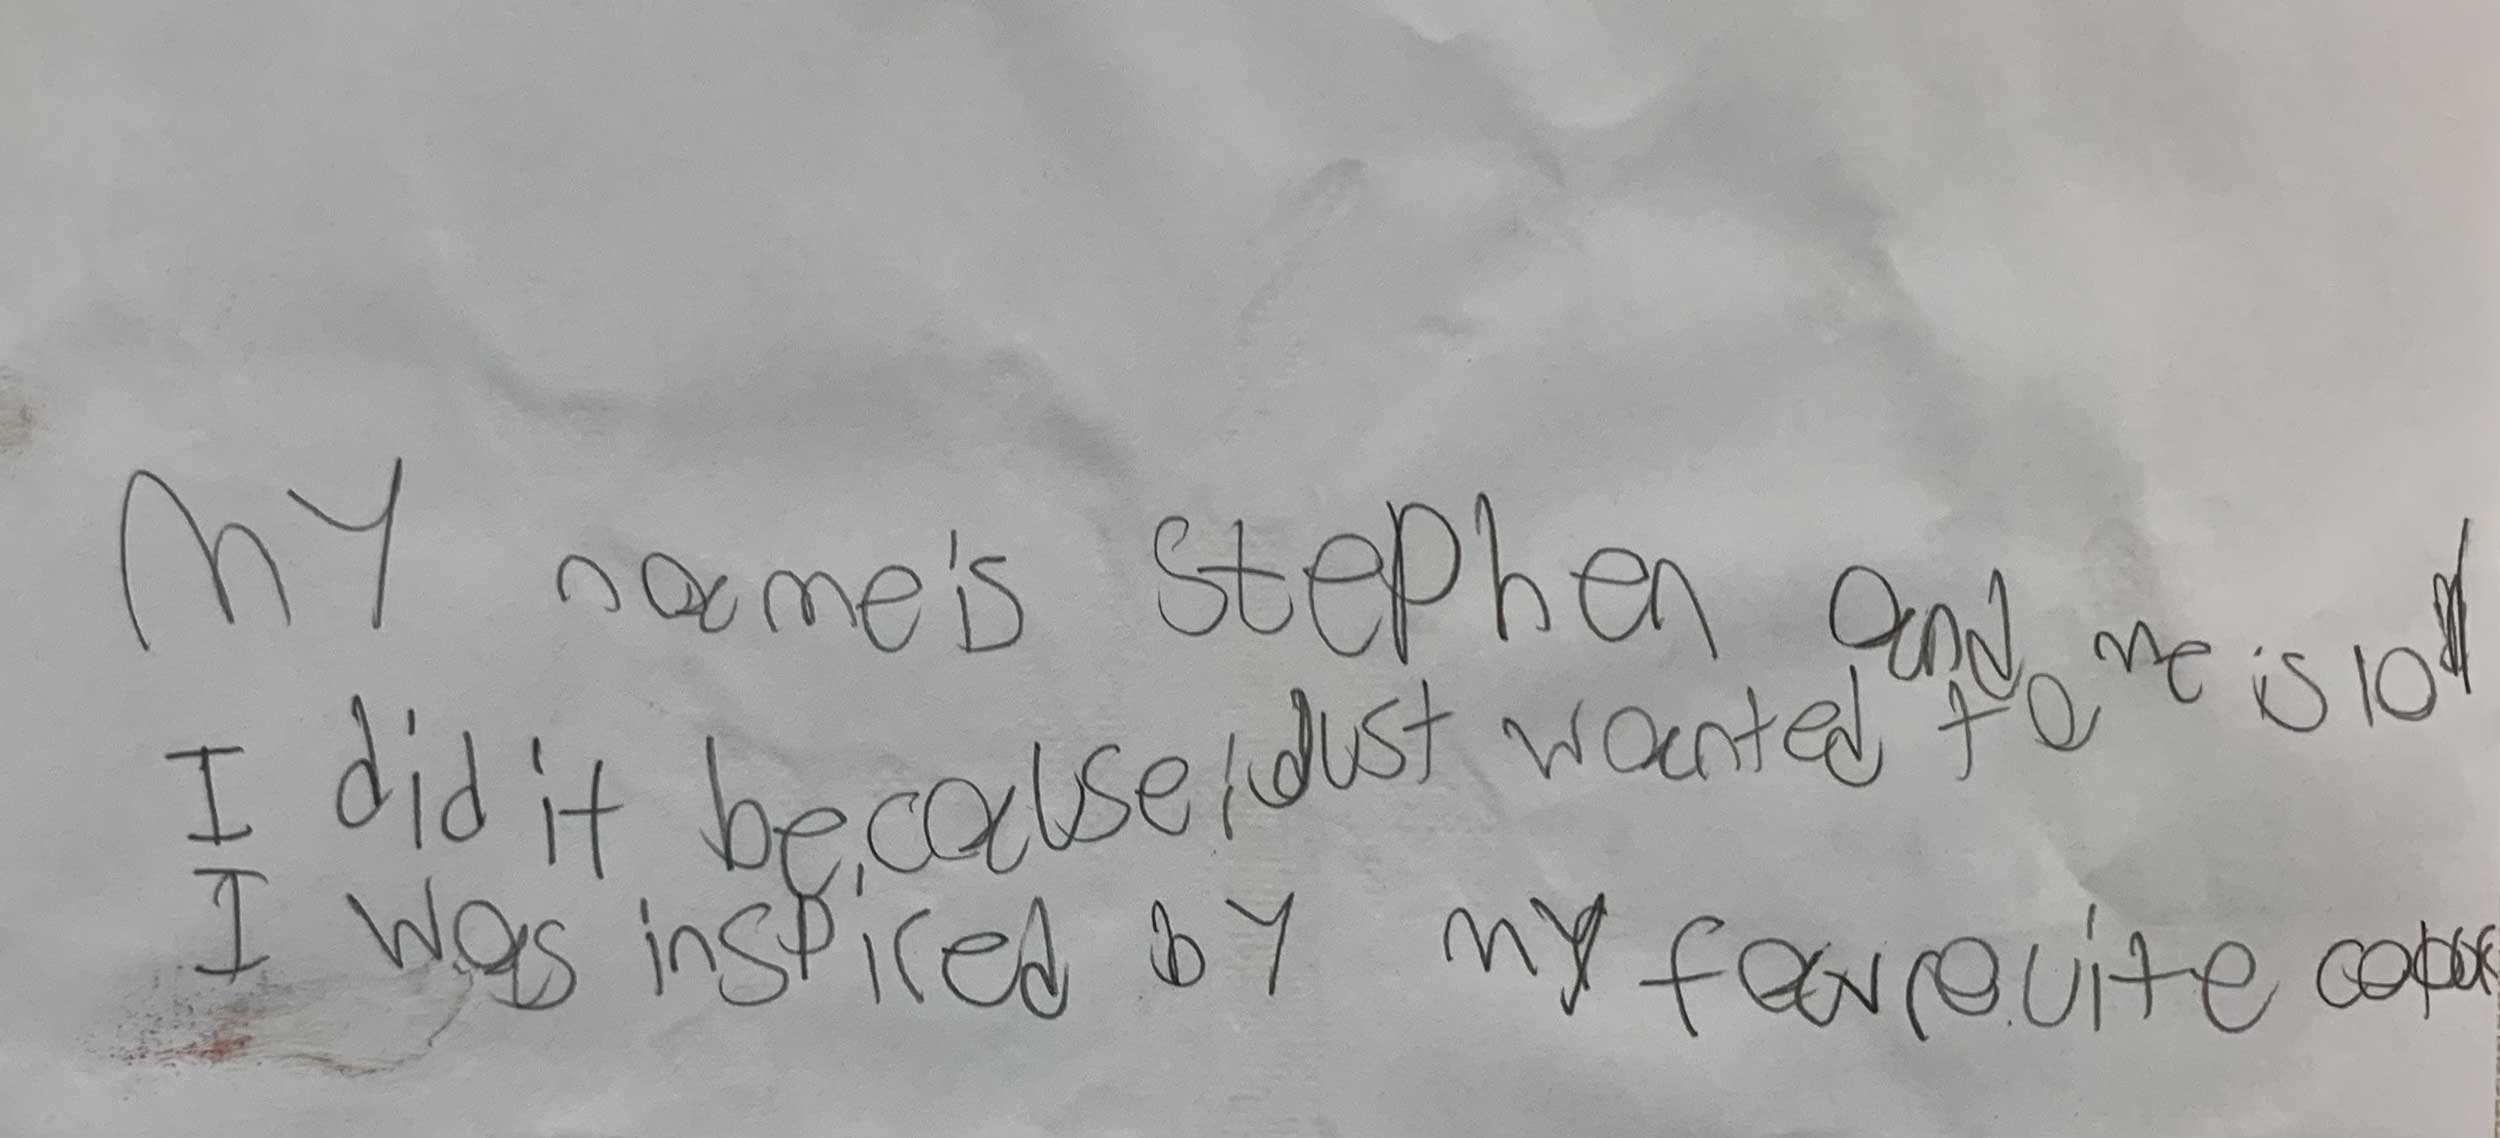 MY name's stephen and me is 10
I did it because i dust wanted to
I was inspired by my favreuite